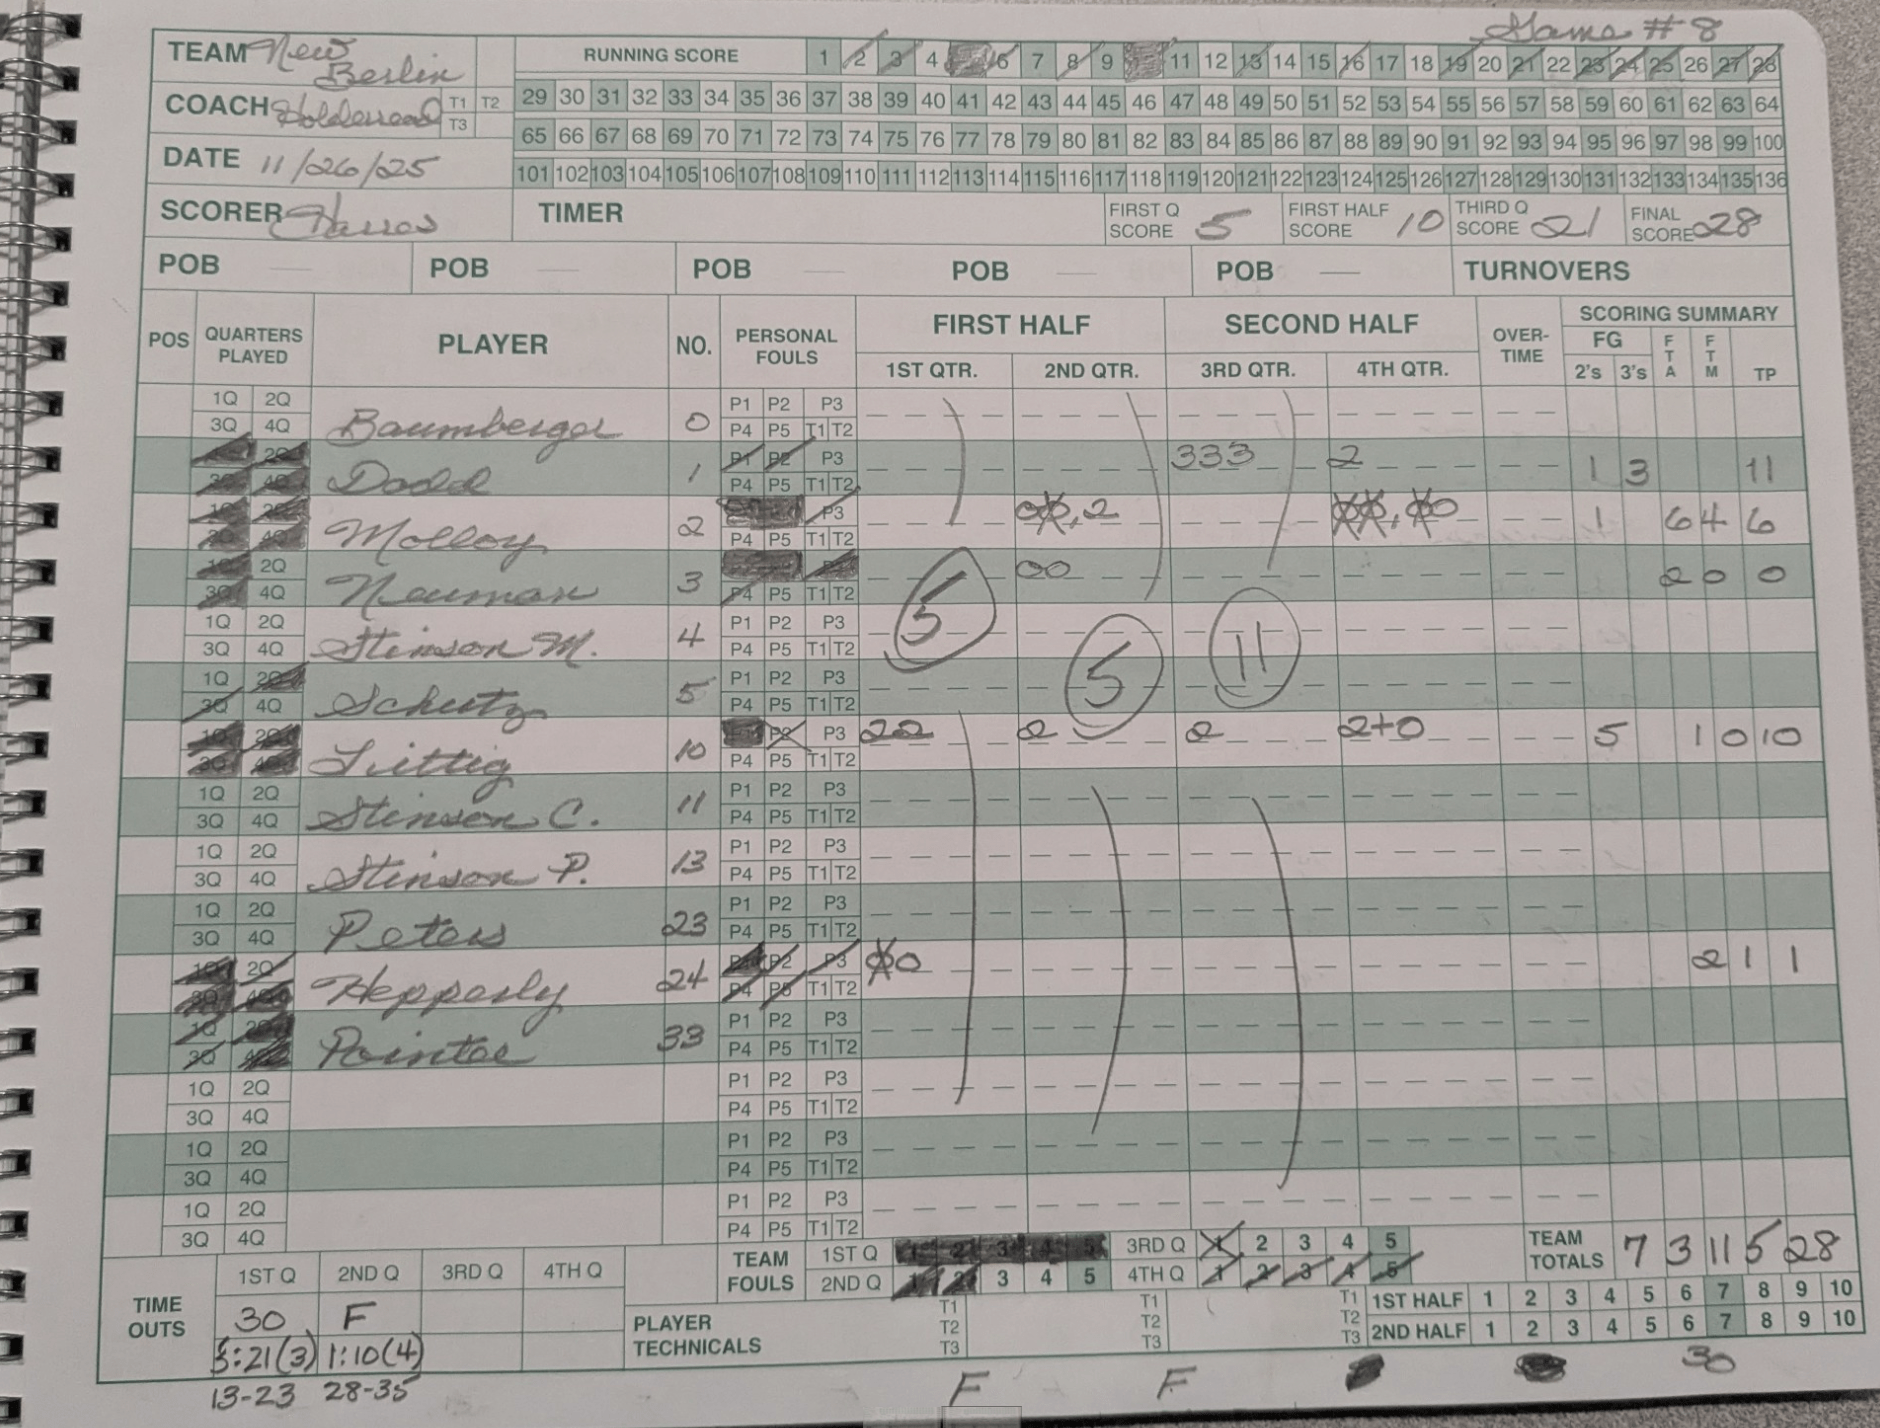 Game # 8
TEAM New Berlin RUNNING SCORE 1 2 3 4 6 7 8 9 11 12 13 14 15 16 17 18 19 20 21 22 23 24 25 26 27 28
COACH T1 T2 T3 29 30 31 32 33 34 35 36 37 38 39 40 41 42 43 44 45 46 47 48 49 50 51 52 53 54 55 56 57 58 59 60 61 62 63 64
65 66 67 68 69 70 71 72 73 74 75 76 77 78 79 80 81 82 83 84 85 86 87 88 89 90 91 92 93 94 95 96 97 98 99 100
DATE 11/26/25 101 102 103 104 105 106 107 108 109 110 111 112 113 114 115 116 117 118 119 120 121 122 123 124 125 126 127 128 129 130 131 132 133 134 135 136
SCORER TIMER FIRST Q SCORE 5 FIRST HALF SCORE 10 THIRD Q SCORE 21 FINAL SCORE 28
POB — POB — POB — POB — POB — TURNOVERS
POS QUARTERS PLAYED PLAYER NO. PERSONAL FOULS FIRST HALF SECOND HALF OVER-TIME SCORING SUMMARY
1ST QTR. 2ND QTR. 3RD QTR. 4TH QTR. FG 2's 3's FTA FTM TP
1Q 2Q 3Q 4Q Baumberger 0 P1 P2 P3 P4 P5 T1 T2
2Q 3Q 4Q Dodd 1 P1 P2 P3 P4 P5 T1 T2 333 2 1 3 11
1Q 2Q 3Q 4Q Molloy 2 P3 P4 P5 T1 T2 2 1 6 4 6
1Q 2Q 3Q 4Q Neuman 3 P4 P5 T1 T2 00 2 0 0
1Q 2Q 3Q 4Q Stinson M. 4 P1 P2 P3 P4 P5 T1 T2 5 11
1Q 2Q 3Q 4Q Schutz 5 P1 P2 P3 P4 P5 T1 T2 5
1Q 2Q 3Q 4Q Littig 10 P2 P3 P4 P5 T1 T2 22 2 2 2+0 5 1 0 10
1Q 2Q 3Q 4Q Stinson C. 11 P1 P2 P3 P4 P5 T1 T2
1Q 2Q 3Q 4Q Stinson P. 13 P1 P2 P3 P4 P5 T1 T2
1Q 2Q 3Q 4Q Peters 23 P1 P2 P3 P4 P5 T1 T2
1Q 2Q 3Q 4Q Hepperly 24 P1 P2 P3 P4 P5 T1 T2 0 2 1 1
1Q 2Q 3Q 4Q Pointer 33 P1 P2 P3 P4 P5 T1 T2
1Q 2Q 3Q 4Q P1 P2 P3 P4 P5 T1 T2
1Q 2Q 3Q 4Q P1 P2 P3 P4 P5 T1 T2
1Q 2Q 3Q 4Q P1 P2 P3 P4 P5 T1 T2
TEAM FOULS 1ST Q 1 2 3 4 5 3RD Q 1 2 3 4 5 TEAM TOTALS 7 3 11 5 28
2ND Q 1 2 3 4 5 4TH Q 1 2 3 4 5
TIME OUTS 1ST Q 2ND Q 3RD Q 4TH Q
30 F
5:21(3) 1:10(4)
13-23 28-35
PLAYER TECHNICALS T1 T2 T3 T1 T2 T3 T1 T2 T3
1ST HALF 1 2 3 4 5 6 7 8 9 10
2ND HALF 1 2 3 4 5 6 7 8 9 10
F F 30